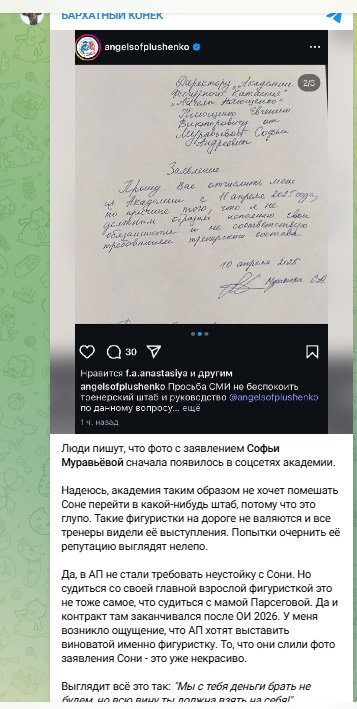 БАРХАТНЫЙ КОНЕК
angelsofplushenko
2/3
Директору "Академии
фигурного катания"
"Ангелы Плющенко"
Плющенко Евгению
Викторовичу от
Муравьёвой Софьи
Андреевны
Заявление
Прошу Вас отчислить меня
из Академии с 11 апреля 2025 года,
по причине того, что я не
должным образом исполняю свои
обязанности и не соответствую
требованиям тренерского состава.
10 апреля 2025
Муравьева С.А.
30
Нравится f.a.anastasiya и другим
angelsofplushenko Просьба СМИ не беспокоить
тренерский штаб и руководство @angelsofplushenko
по данному вопросу... ещё
1 ч. назад
Люди пишут, что фото с заявлением Софьи
Муравьёвой сначала появилось в соцсетях академии.
Надеюсь, академия таким образом не хочет помешать
Соне перейти в какой-нибудь штаб, потому что это
глупо. Такие фигуристки на дороге не валяются и все
тренеры видели её выступления. Попытки очернить её
репутацию выглядят нелепо.
Да, в АП не стали требовать неустойку с Сони. Но
судиться со своей главной взрослой фигуристкой это
не тоже самое, что судиться с мамой Парсеговой. Да и
контракт там заканчивался после ОИ 2026. У меня
возникло ощущение, что АП хотят выставить
виноватой именно фигуристку. То, что они слили фото
заявления Сони - это уже некрасиво.
Выглядит всё это так: "Мы с тебя деньги брать не
будем, но всю вину ты должна взять на себя!"